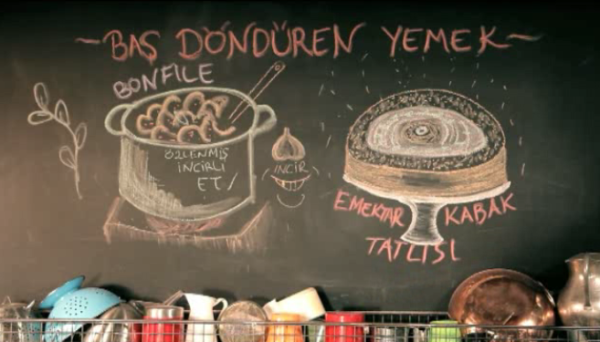 ~BAŞ DÖNDÜREN YEMEK~
BONFİLE
ÖZLENMİŞ
İNCİRLİ
ET/
İNCİR
EMEKTAR KABAK
TATLISI